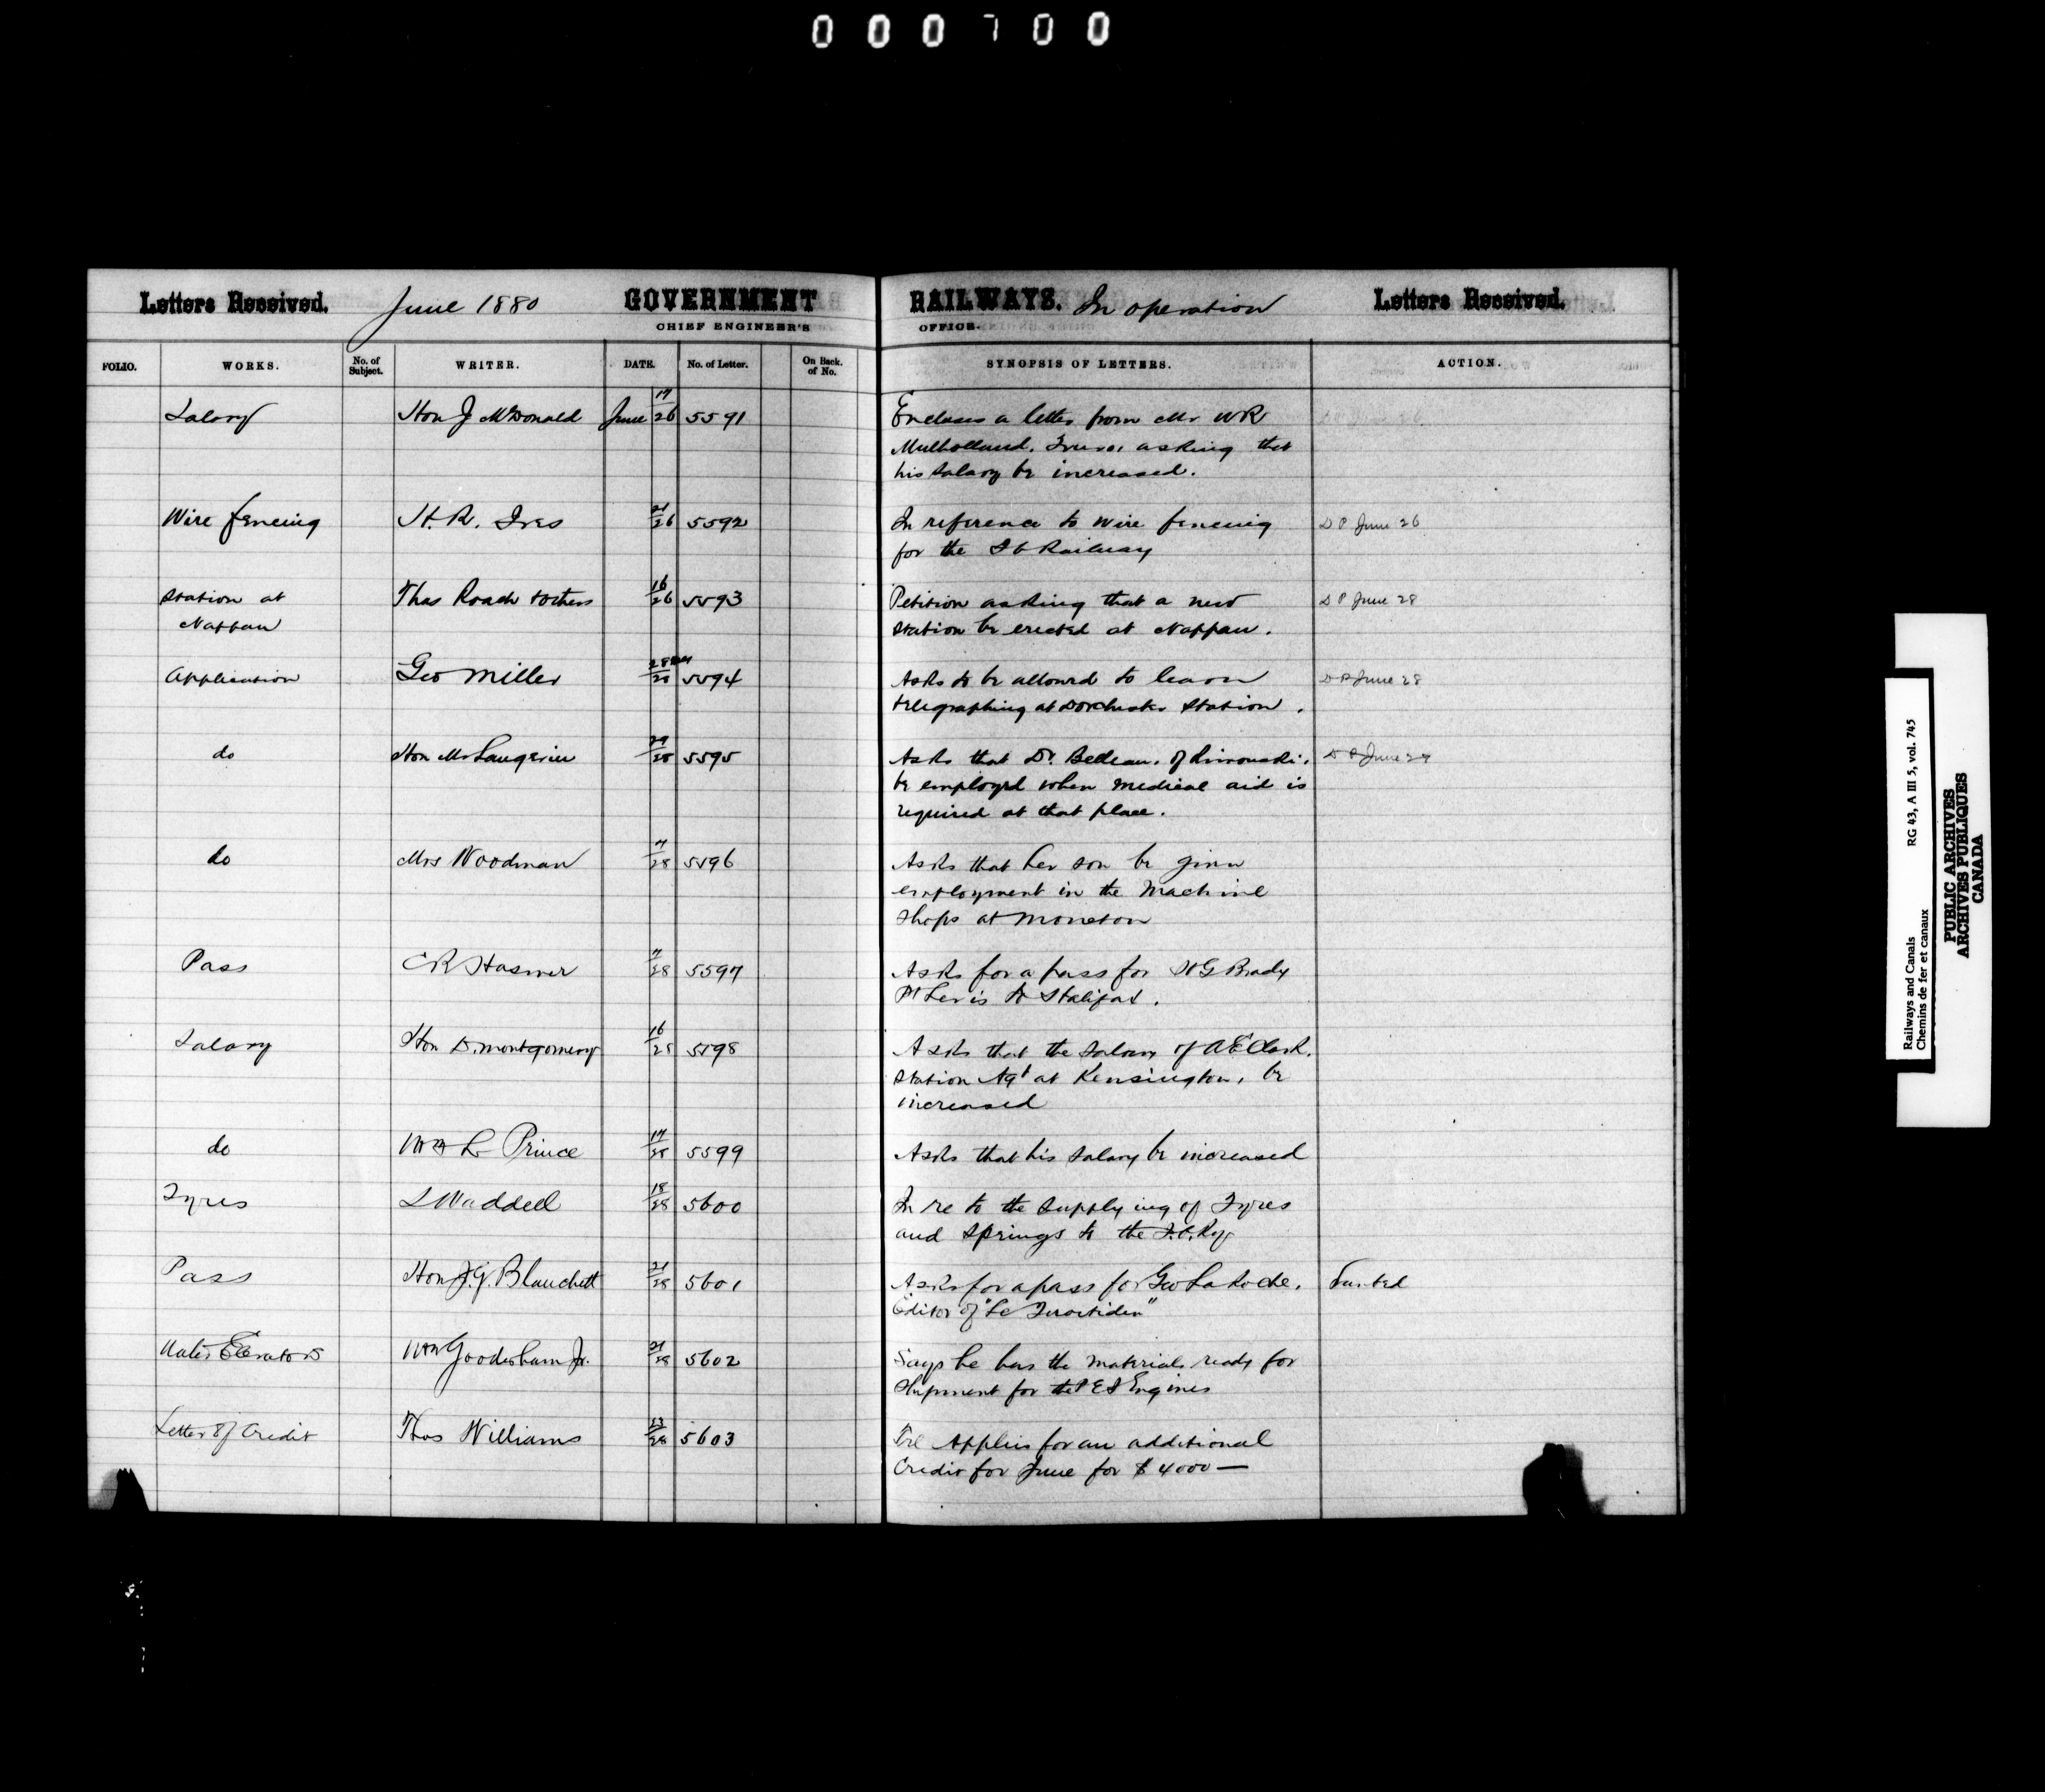 000700
Letters Received. June 1880 GOVERNMENT RAILWAYS. In operation Letters Received.
CHIEF ENGINEER'S OFFICE.
FOLIO. WORKS. No. of Subject. WRITER. DATE. No. of Letter. On Back. of No. SYNOPSIS OF LETTERS. ACTION.
Salary Hon J McDonald June 17/26 5591 Encloses a letter from Mr WR
Mulholland. Truro, asking that
his salary be increased.
Wire fencing H. R. Ives 21/26 5592 In reference to wire fencing D P June 26
for the I C Railway
Station at Thos Roach & others 16/26 5593 Petition asking that a new D P June 28
Nappan station be erected at Nappan.
Application Geo Miller 28 5594 Asks to be allowed to learn D P June 28
telegraphing at Dorchester Station.
do Hon Mr Langevin 28 5595 Asks that Dr. Belleau. of Rimouski. D P June 29
be employed when medical aid is
required at that place.
do Mrs Woodman 28 5596 Asks that her son be given
employment in the Machine
Shops at Moncton
Pass C R Hosmer 28 5597 Asks for a pass for H G Brady
Pt Levis to Halifax.
Salary Hon D. Montgomery 16/28 5598 Asks that the salary of A E Clark.
Station Agt at Kensington, be
increased
do Wm L Prince 17/28 5599 Asks that his salary be increased
Tyres L Waddell 18/28 5600 In re to the supplying of Tyres
and Springs to the I.C. Ry
Pass Hon J. G. Blanchett 21/28 5601 Asks for a pass for Geo LaRoche.
Editor of "Le
Water Elevators Wm Gooderham Jr. 21/28 5602 Says he has the materials ready for
shipment for the P E I Engines
Letter of Credit Thos Williams 23/28 5603 Tel Applies for an additional
Credit for June for $4000—
Railways and Canals RG 43, A III 5, vol. 745
Chemins de fer et canaux
PUBLIC ARCHIVES
ARCHIVES PUBLIQUES
CANADA